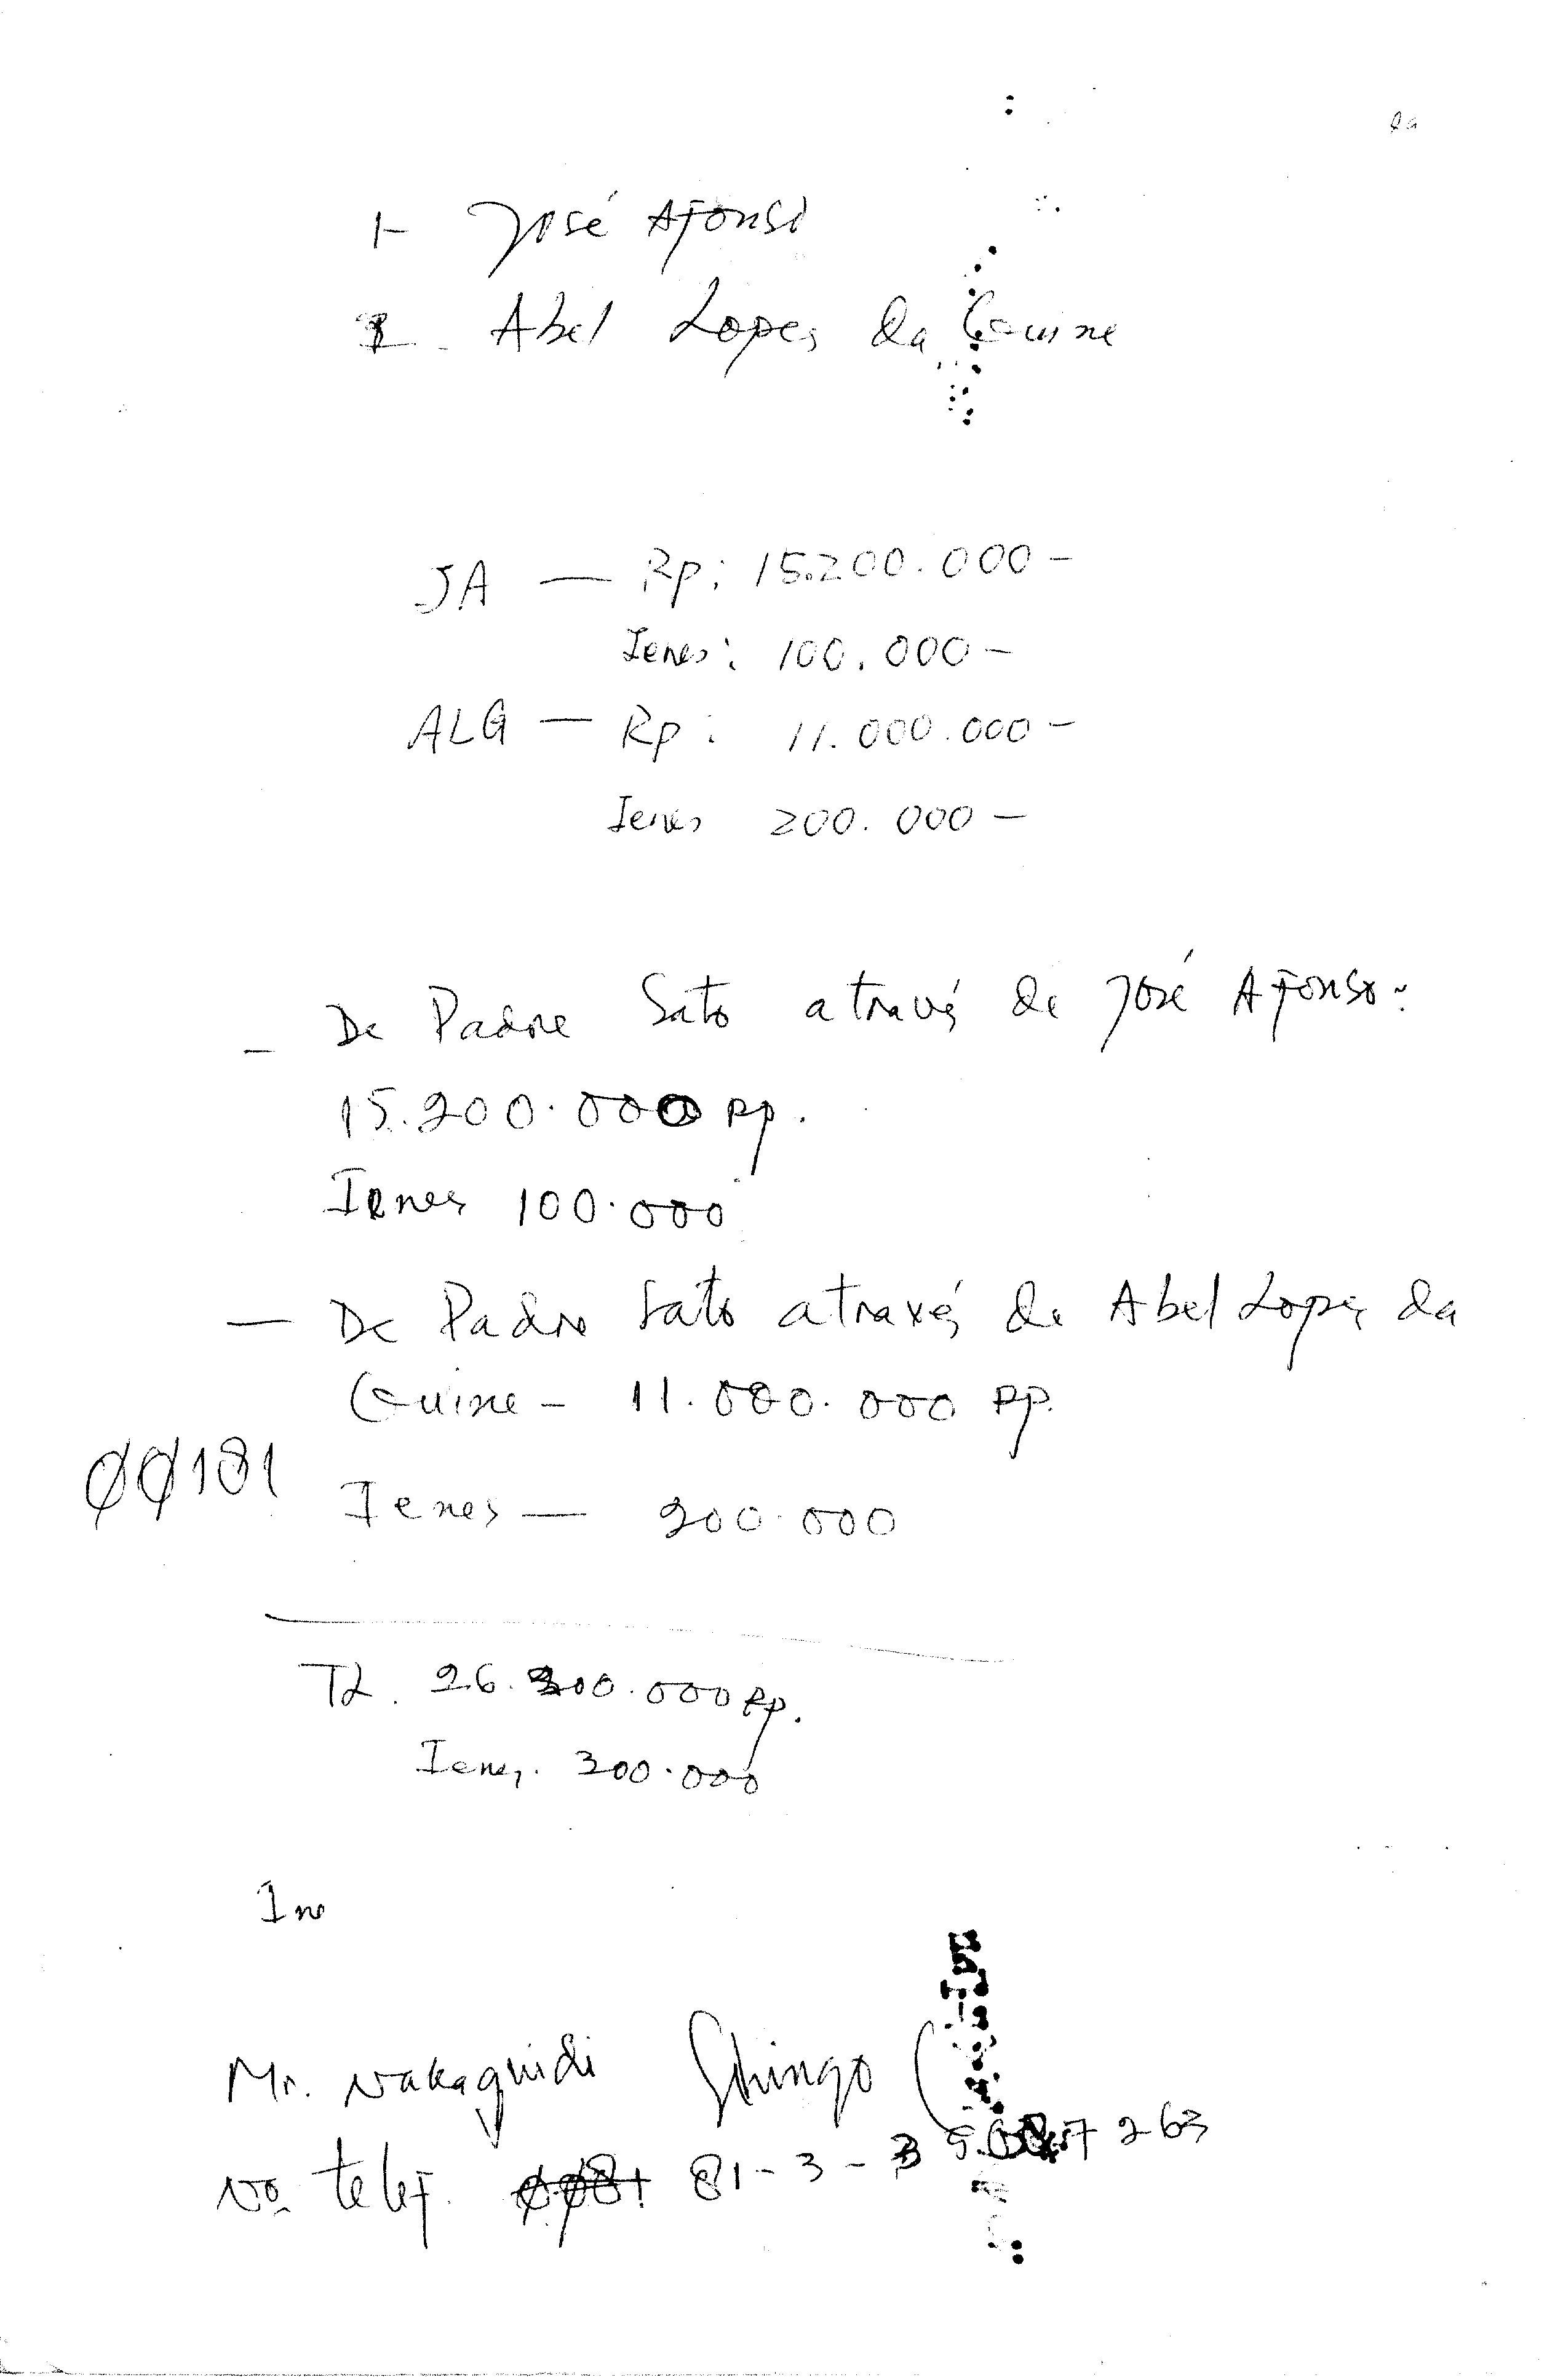 da
1- José Afonso
2- Abel Lopes da Guine
JA — Rp: 15.200.000 -
Ienes: 100.000 -
ALG — Rp: 11.000.000 -
Ienes 200.000 —
- De Padre Sato através de José Afonso:
15.200.000 Rp.
Ienes 100.000
— De Padre Sato através de Abel Lopes da
Guine - 11.000.000 Rp.
00181
Ienes — 200.000
Tl. 26.200.000 Rp.
Ienes. 300.000
Mr. Nakaguidi Shingo (
No telef. 0081 81-3-3 263